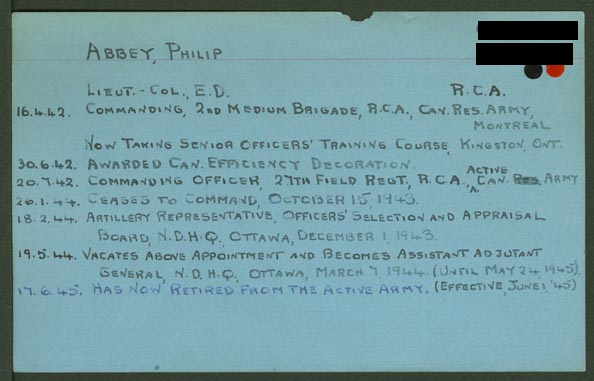 ABBEY, PHILIP
LIEUT.-COL., E.D. R.C.A.
16.4.42. COMMANDING, 2ND MEDIUM BRIGADE, R.C.A., CAN. RES. ARMY,
MONTREAL
NOW TAKING SENIOR OFFICERS' TRAINING COURSE, KINGSTON, ONT.
30.6.42. AWARDED CAN. EFFICIENCY DECORATION.
20.7.42. COMMANDING OFFICER, 27TH FIELD REGT, R.C.A., ACTIVE CAN. RES. ARMY
26.1.44. CEASES TO COMMAND, OCTOBER 15, 1943.
18.2.44. ARTILLERY REPRESENTATIVE, OFFICERS' SELECTION AND APPRAISAL
BOARD, N.D.H.Q., OTTAWA, DECEMBER 1, 1943.
19.5.44. VACATES ABOVE APPOINTMENT AND BECOMES ASSISTANT ADJUTANT
GENERAL, N.D.H.Q., OTTAWA, MARCH 7, 1944. (UNTIL MAY 24 1945).
17.6.45. HAS NOW RETIRED FROM THE ACTIVE ARMY. (EFFECTIVE, JUNE 1, '45)